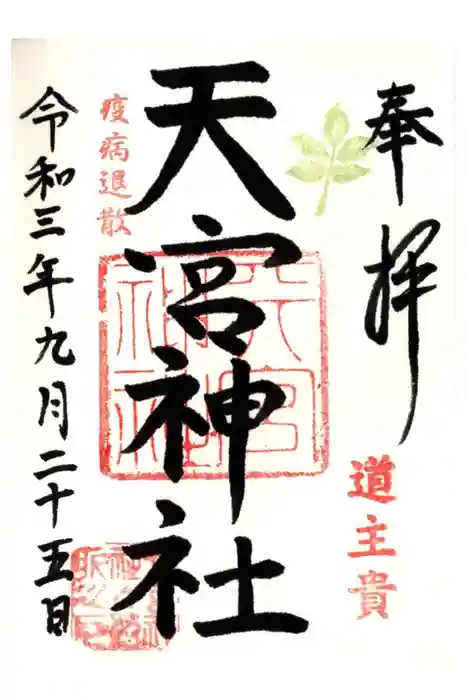 奉拝
道主貴
天宮神社
疫病退散
令和三年九月二十五日
天宮神社